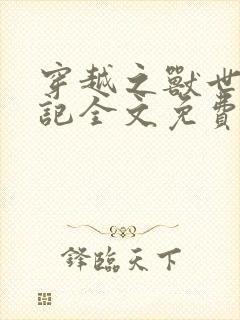 穿越之獸世
記全文免費
鋒臨天下